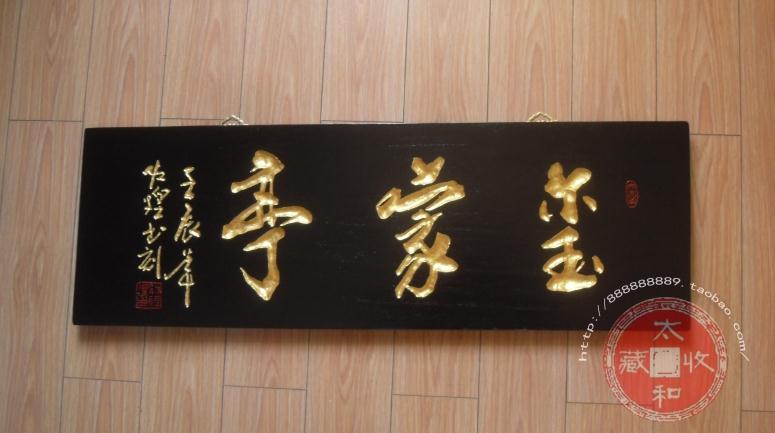 玺蒙亭
壬辰年
佐煌书刻
http://888888889.taobao.com/
太和
收藏